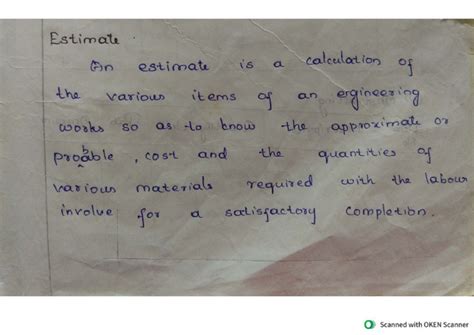 Estimate
An estimate is a calculation of
the various items of an engineering
works so as to know the approximate or
probable, cost and the quantities of
various materials required with the labour
involve for a satisfactory completion.
Scanned with OKEN Scanner